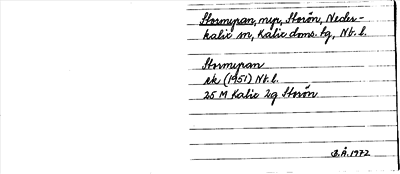 Stormypan, myr, Storön, Neder-
kalix sn, Kalix doms. tg, Nb. l.
Stormypan
ek (1951) Nb. l.
25 M Kalix 2g Storön
B.Å. 1972